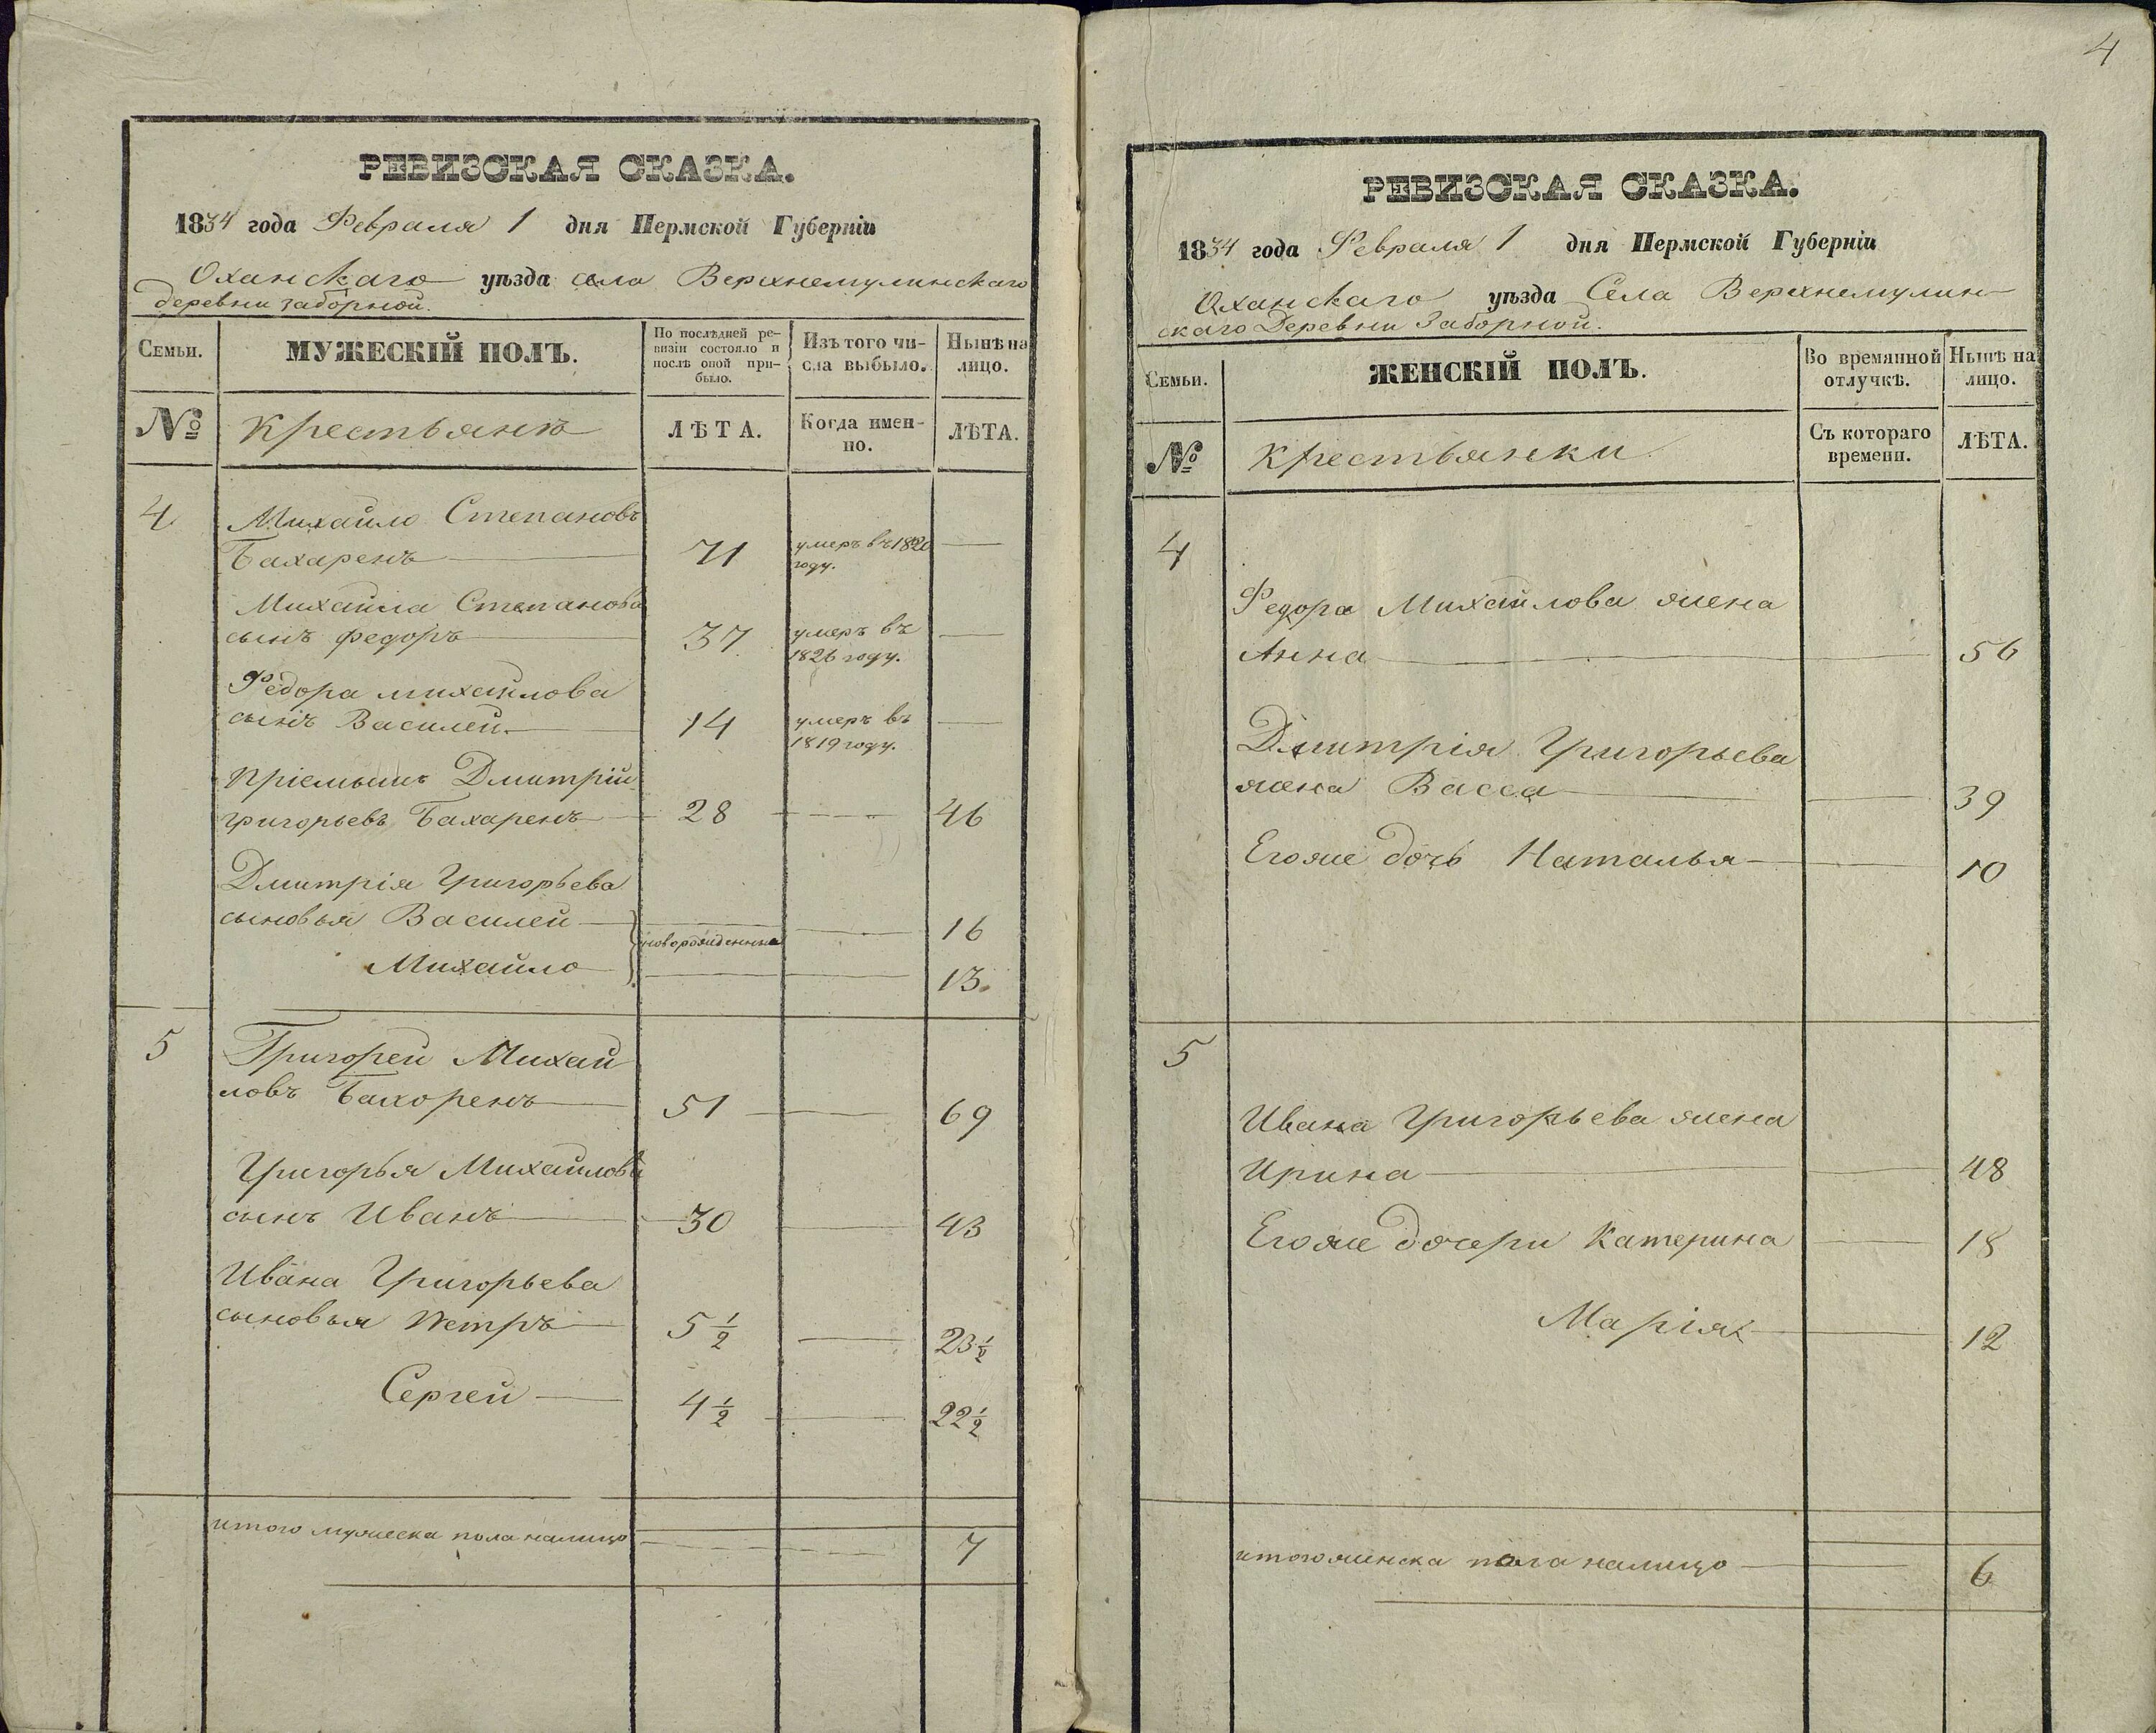 РЕВИЗСКАЯ СКАЗКА.
1834 года Февраля 1 дня Пермской Губерніи
Оханскаго уѣзда села Верхнемулинскаго
деревни заборной.
Семьи.
МУЖЕСКІЙ ПОЛЪ.
По послѣдней ре-
визіи состояло и
послѣ оной при-
было.
Изъ того чи-
сла выбыло.
Нынѣ на
лицо.
№
крестьянъ
ЛѢТА.
Когда имен-
но.
ЛѢТА.
4 Михайло Степановъ
Бахаренъ 71 умеръ въ 1820
году.
Михайла Степанова
сынъ Федоръ 37 умеръ въ
1826 году.
Федора михайлова
сынъ Василей 14 умеръ въ
1819 году.
пріемышъ Дмитрій
григорьевъ Бахаренъ 28 46
Дмитрія Григорьева
сыновья Василей 16
новорожденные
Михайло 13.
5 Григорей Михай
ловъ Бахоренъ 51 69
Григорья Михайлова
сынъ Иванъ 30 43
Ивана Григорьева
сыновья Петръ 5 1/2 23 1/2
Сергей 4 1/2 22 1/2
итого мужеска пола налицо 7
4
РЕВИЗСКАЯ СКАЗКА.
1834 года Февраля 1 дня Пермской Губерніи
Оханскаго уѣзда Села Верхнемулин
скаго Деревни Заборной.
Семьи.
ЖЕНСКІЙ ПОЛЪ.
Во времянной
отлучкѣ.
Нынѣ на
лицо.
№
крестьянки
Съ котораго
времени.
ЛѢТА.
4
Федора Михайлова жена
Анна 56
Дмитрія Григорьева
жена Васса 39
Егоже дочь Наталья 10
5
Ивана Григорьева жена
Ирина 48
Егоже дочери Катерина 18
Марія 12
итого женска пола налицо 6